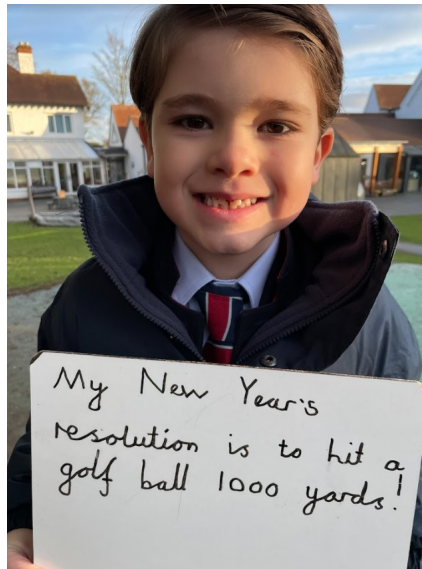 My New Year's
resolution is to hit a
golf ball 1000 yards!